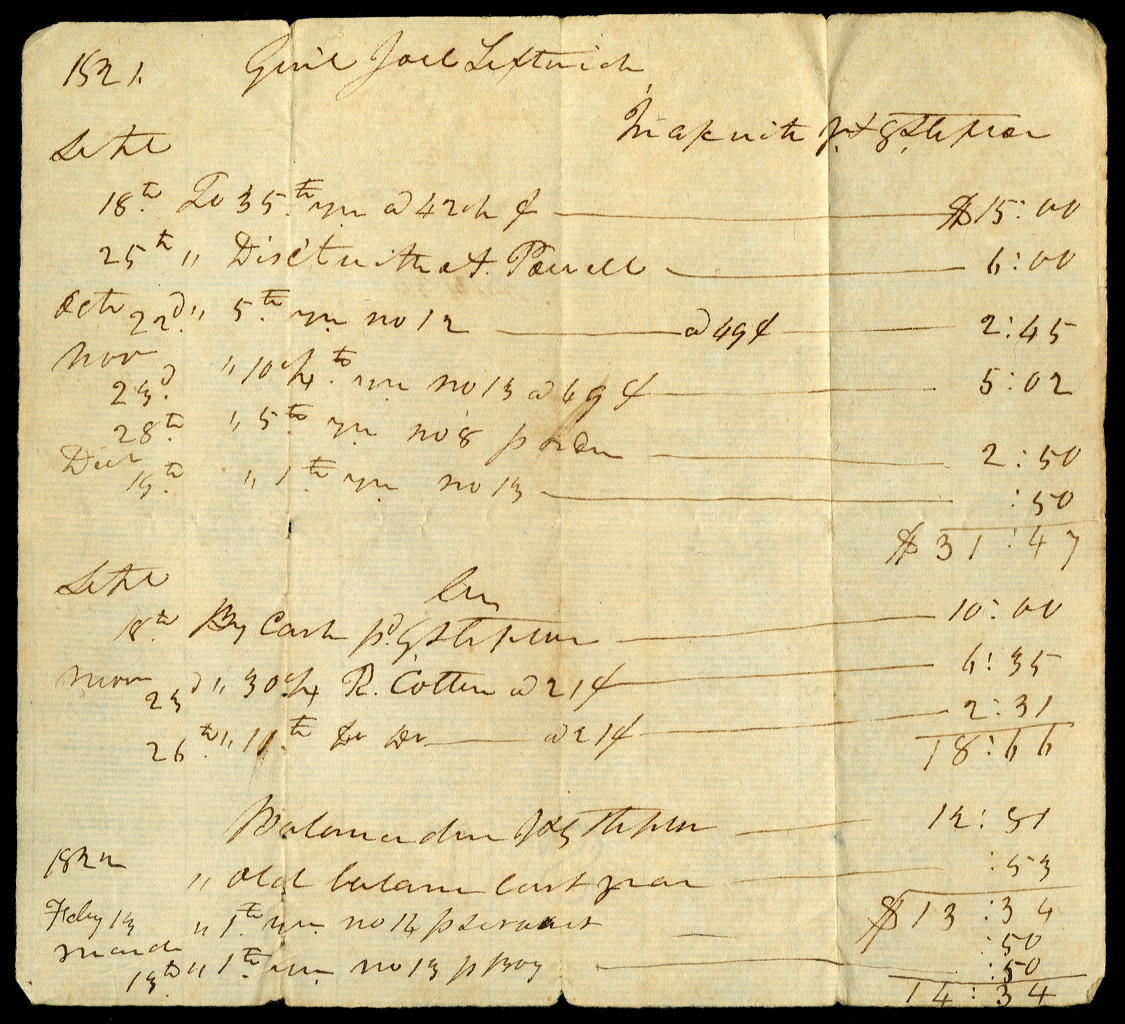 1821. Genl Joel Leftwich
In a/c with J & G Stephens
Septr
18th To 35 lb yn @ 42ch ¢ $15:00
25th " Disct with A. Powell 6:00
Octr 22d " 5 lb yn no 12 @ 49¢ 2:45
Novr
23d " 10 1/4 lb yn no 13 @ 49 ¢ 5:02
28th " 5 lb yn no 8 p order 2:50
Decr
15th " 1 lb yn no 13 :50
$31:47
Septr Cr
18th By Cash pd. G Stephens 10:00
Novr 23d " 30 1/4 R. Cotten @ 21¢ 6:35
26th " 11 lb Do Do @ 21¢ 2:31
18:66
Balance due J & G Stephens 12:81
1822 " old balance last year :53
$13:34
Feby 13 " 1 lb yn no 12 p servant :50
March
13th " 1 lb yn no 13 p Boy :50
14:34